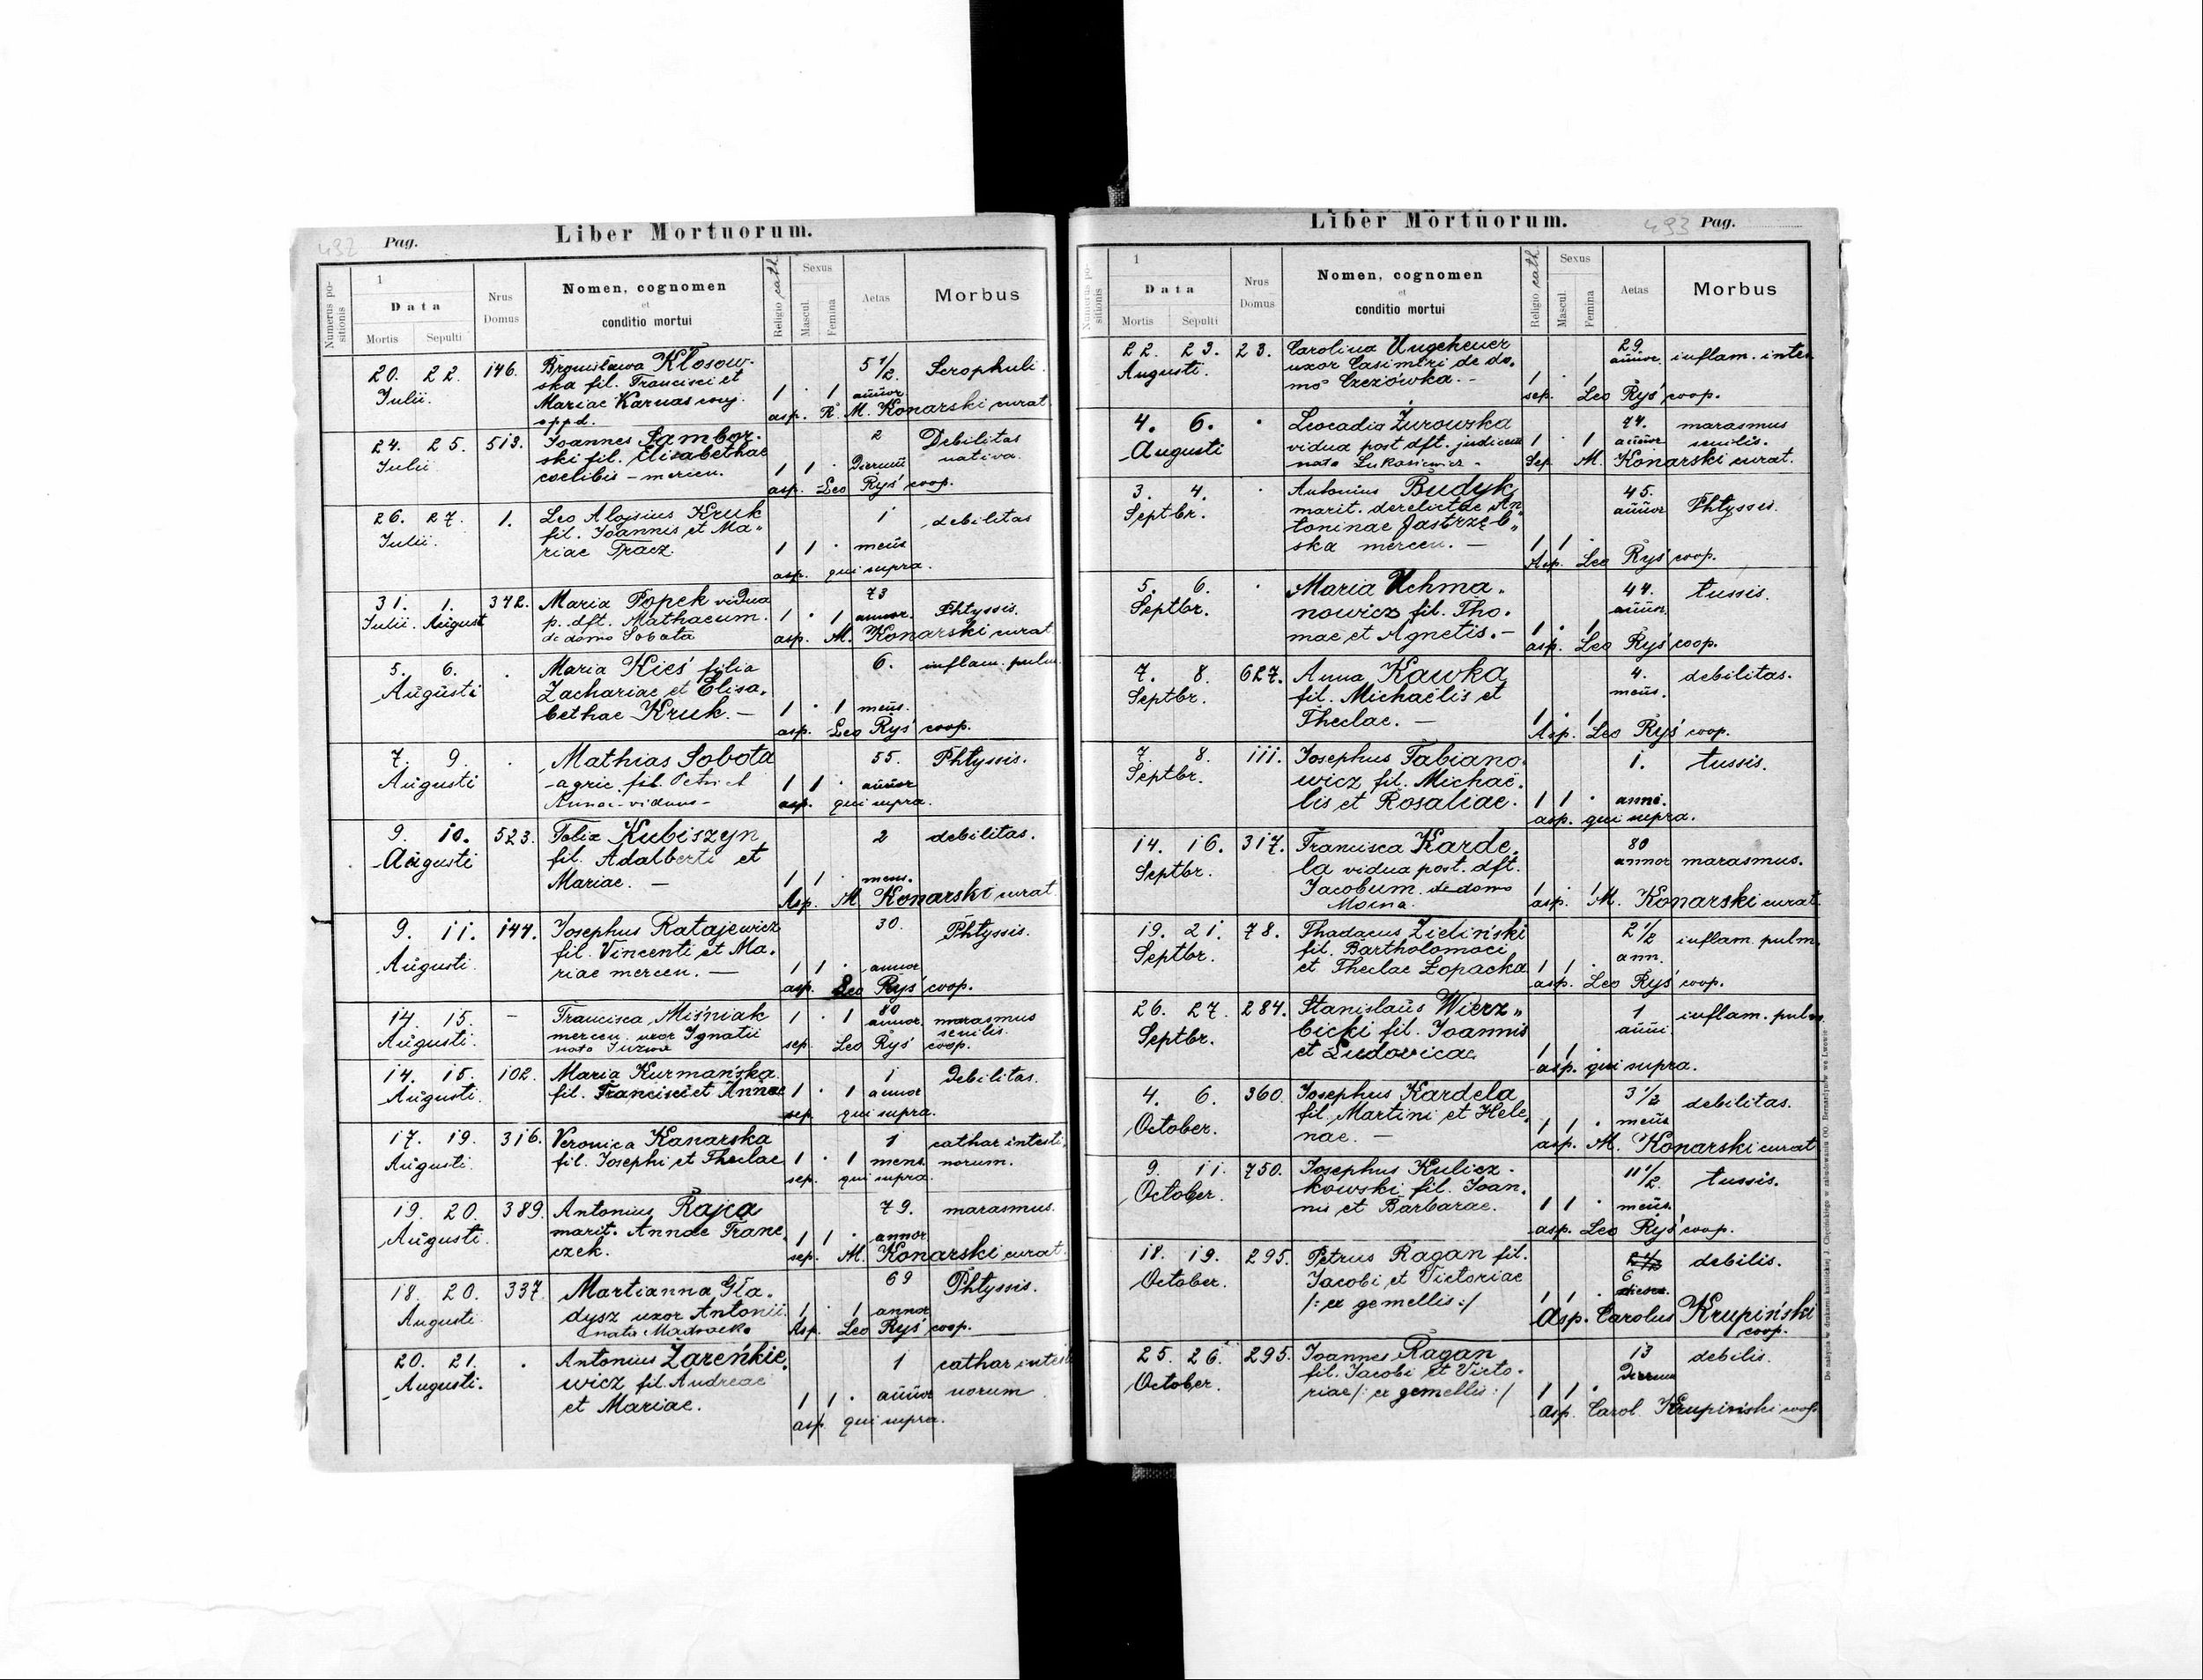 432 Pag. Liber Mortuorum.
Numerus positionis
1
Data
Mortis Sepulti
Nrus Domus
Nomen, cognomen
et
conditio mortui
Religio cath.
Sexus
Mascul. Femina
Aetas
Morbus
20. 22. 146. Bronisława Kłosow- 5 1/2 Scrophuli
Iulii. ska fil. Francisci et
Mariae Karnas conj. 1 . 1 annor
oppd. asp. R. M. Konarski curat.
24. 25. 513. Ioannes Sambor- 2 Debilitas
Iulii ski fil. Elisabethae Dierum nativa.
coelibis – mercen. 1 1 .
asp. Leo Ryś coop.
26. 27. 1. Leo Aloisius Kruk 1 debilitas
Iulii. fil. Ioannis et Ma„
riae Tracz. 1 1 . mens
asp. qui supra.
31. 1. 342. Maria Popek vidua 73 Phtyssis.
Iulii. August p. dft. Mathaeum. 1 . 1 annor.
de domo Sobota asp. M. Konarski curat.
5. 6. . Maria Kieś filia 6. inflam. pulm.
Augusti Zachariae et Elisa„
bethae Kruk. – 1 . 1 mens.
asp. Leo Ryś coop.
7. 9. . Mathias Sobota 55. Phtyssis.
Augusti agric. fil. Petri et 1 1 . annor
Annae – viduus – asp. qui supra.
9. 10. 523. Kubiszyn 2 debilitas.
Augusti fil. Adalberti et
Mariae. – 1 1 . mens.
Asp. M. Konarski curat
9. 11. 144. Josephus Ratajewicz 30. Phtyssis.
Augusti. fil. Vincenti et Ma.
riae mercen. – 1 1 . annor
asp. Leo Ryś coop.
14. 15. – Francisca Miśniak 1 . 1 80 marasmus
Augusti. mercen. uxor Ignatii annor. senilis.
nata sep. Leo Ryś coop.
14. 15. 102. Maria Kurmańska 1 Debilitas.
Augusti. fil. Francisci et Annae 1 . 1 annor
sep. qui supra.
17. 19. 316. Veronica Kanarska 1 cathar intesti.
Augusti. fil. Josephi et Theclae 1 . 1 mens. norum.
sep. qui supra.
19. 20. 389. Antonius Rajca 79. marasmus.
Augusti. marit. Annae Franc.
czek. 1 1 . annor
sep. M. Konarski curat.
18. 20. 337. Martianna Gła. 69 Phtyssis.
Augusti dysz uxor Antonii. 1 . 1 annor
nata Asp. Leo Ryś coop.
20. 21. . Antonius Żareńkie. 1 cathar intesti
Augusti. wicz fil. Andreae norum
et Mariae. 1 1 . annor
asp. qui supra.
Liber Mortuorum. 493 Pag.
Numerus positionis
1
Data
Mortis Sepulti
Nrus Domus
Nomen, cognomen
et
conditio mortui
Religio cath.
Sexus
Mascul. Femina
Aetas
Morbus
22. 23. 23. Carolina Ungeheuer 29. inflam. intes
Augusti. uxor Casimiri de do. annor.
mo Czezówka. – 1 . 1
sep. Leo Ryś coop.
4. 6. . Leocadia Żurowska 74. marasmus
Augusti vidua post dft. judicem 1 . 1 annor senilis.
nata Łukasiewicz – Sep. M. Konarski curat.
3. 4. . Antonius Budyk 45. Phtyssis.
Septbr. marit. derelictae An annor
toninae Jastrzęb„
ska mercen. – 1 1 .
Asp. Leo Ryś coop.
5. 6. . Maria Uchma. 44. tussis.
Septbr. nowicz fil. Tho. annor.
mae et Agnetis. – 1 . 1
asp. Leo Ryś coop.
7. 8. 627. Anna Kawka 4. debilitas.
Septbr. fil. Michaëlis et mens.
Theclae. – 1 . 1
Asp. Leo Ryś coop.
7. 8. 111. Josephus Fabiano. 1. tussis.
Septbr. wicz fil. Michaë.
lis et Rosaliae. 1 1 . anni.
asp. qui supra.
14. 16. 317. Francisca Karde. 80
Septbr. la vidua post. dft. annor marasmus.
Jacobum. de domo 1 . 1
asp. M. Konarski curat.
19. 21. 78. Thadaeus Zieliński 2 1/2 inflam. pulm.
Septbr. fil. Bartholomaei ann.
et Theclae Łopacka 1 1 .
asp. Leo Ryś coop.
26. 27. 284. Stanislaus Wierz„ 1 inflam. pulm.
Septbr. bicki fil. Joannis anni.
et Ludovicae 1 1 .
asp. qui supra.
4. 6. 360. Josephus Kardela 3 1/2 debilitas.
October. fil. Martini et Hele.
nae. – 1 1 . mens
asp. M. Konarski curat
9. 11. 750. Josephus Kulicz- 11 1/2 tussis.
October. kowski fil. Joan.
nis et Barbarae. 1 1 . mens.
asp. Leo Ryś coop.
18. 19. 295. Petrus Ragan fil. 6 debilis.
October. Jacobi et Victoriae
/: ex gemellis :/ 1 1 . dierum
Asp. Carolus Krupiński
coop.
25. 26. 295. Joannes Ragan 13 debilis.
October. fil. Jacobi et Victo. Dierum
riae /: ex gemellis :/ 1 1 .
Asp. Carol. Krupiński coop.
Do nabycia w drukarni katolickiej J. Chęcińskiego w zabudowaniu OO. Bernardynów we Lwowie